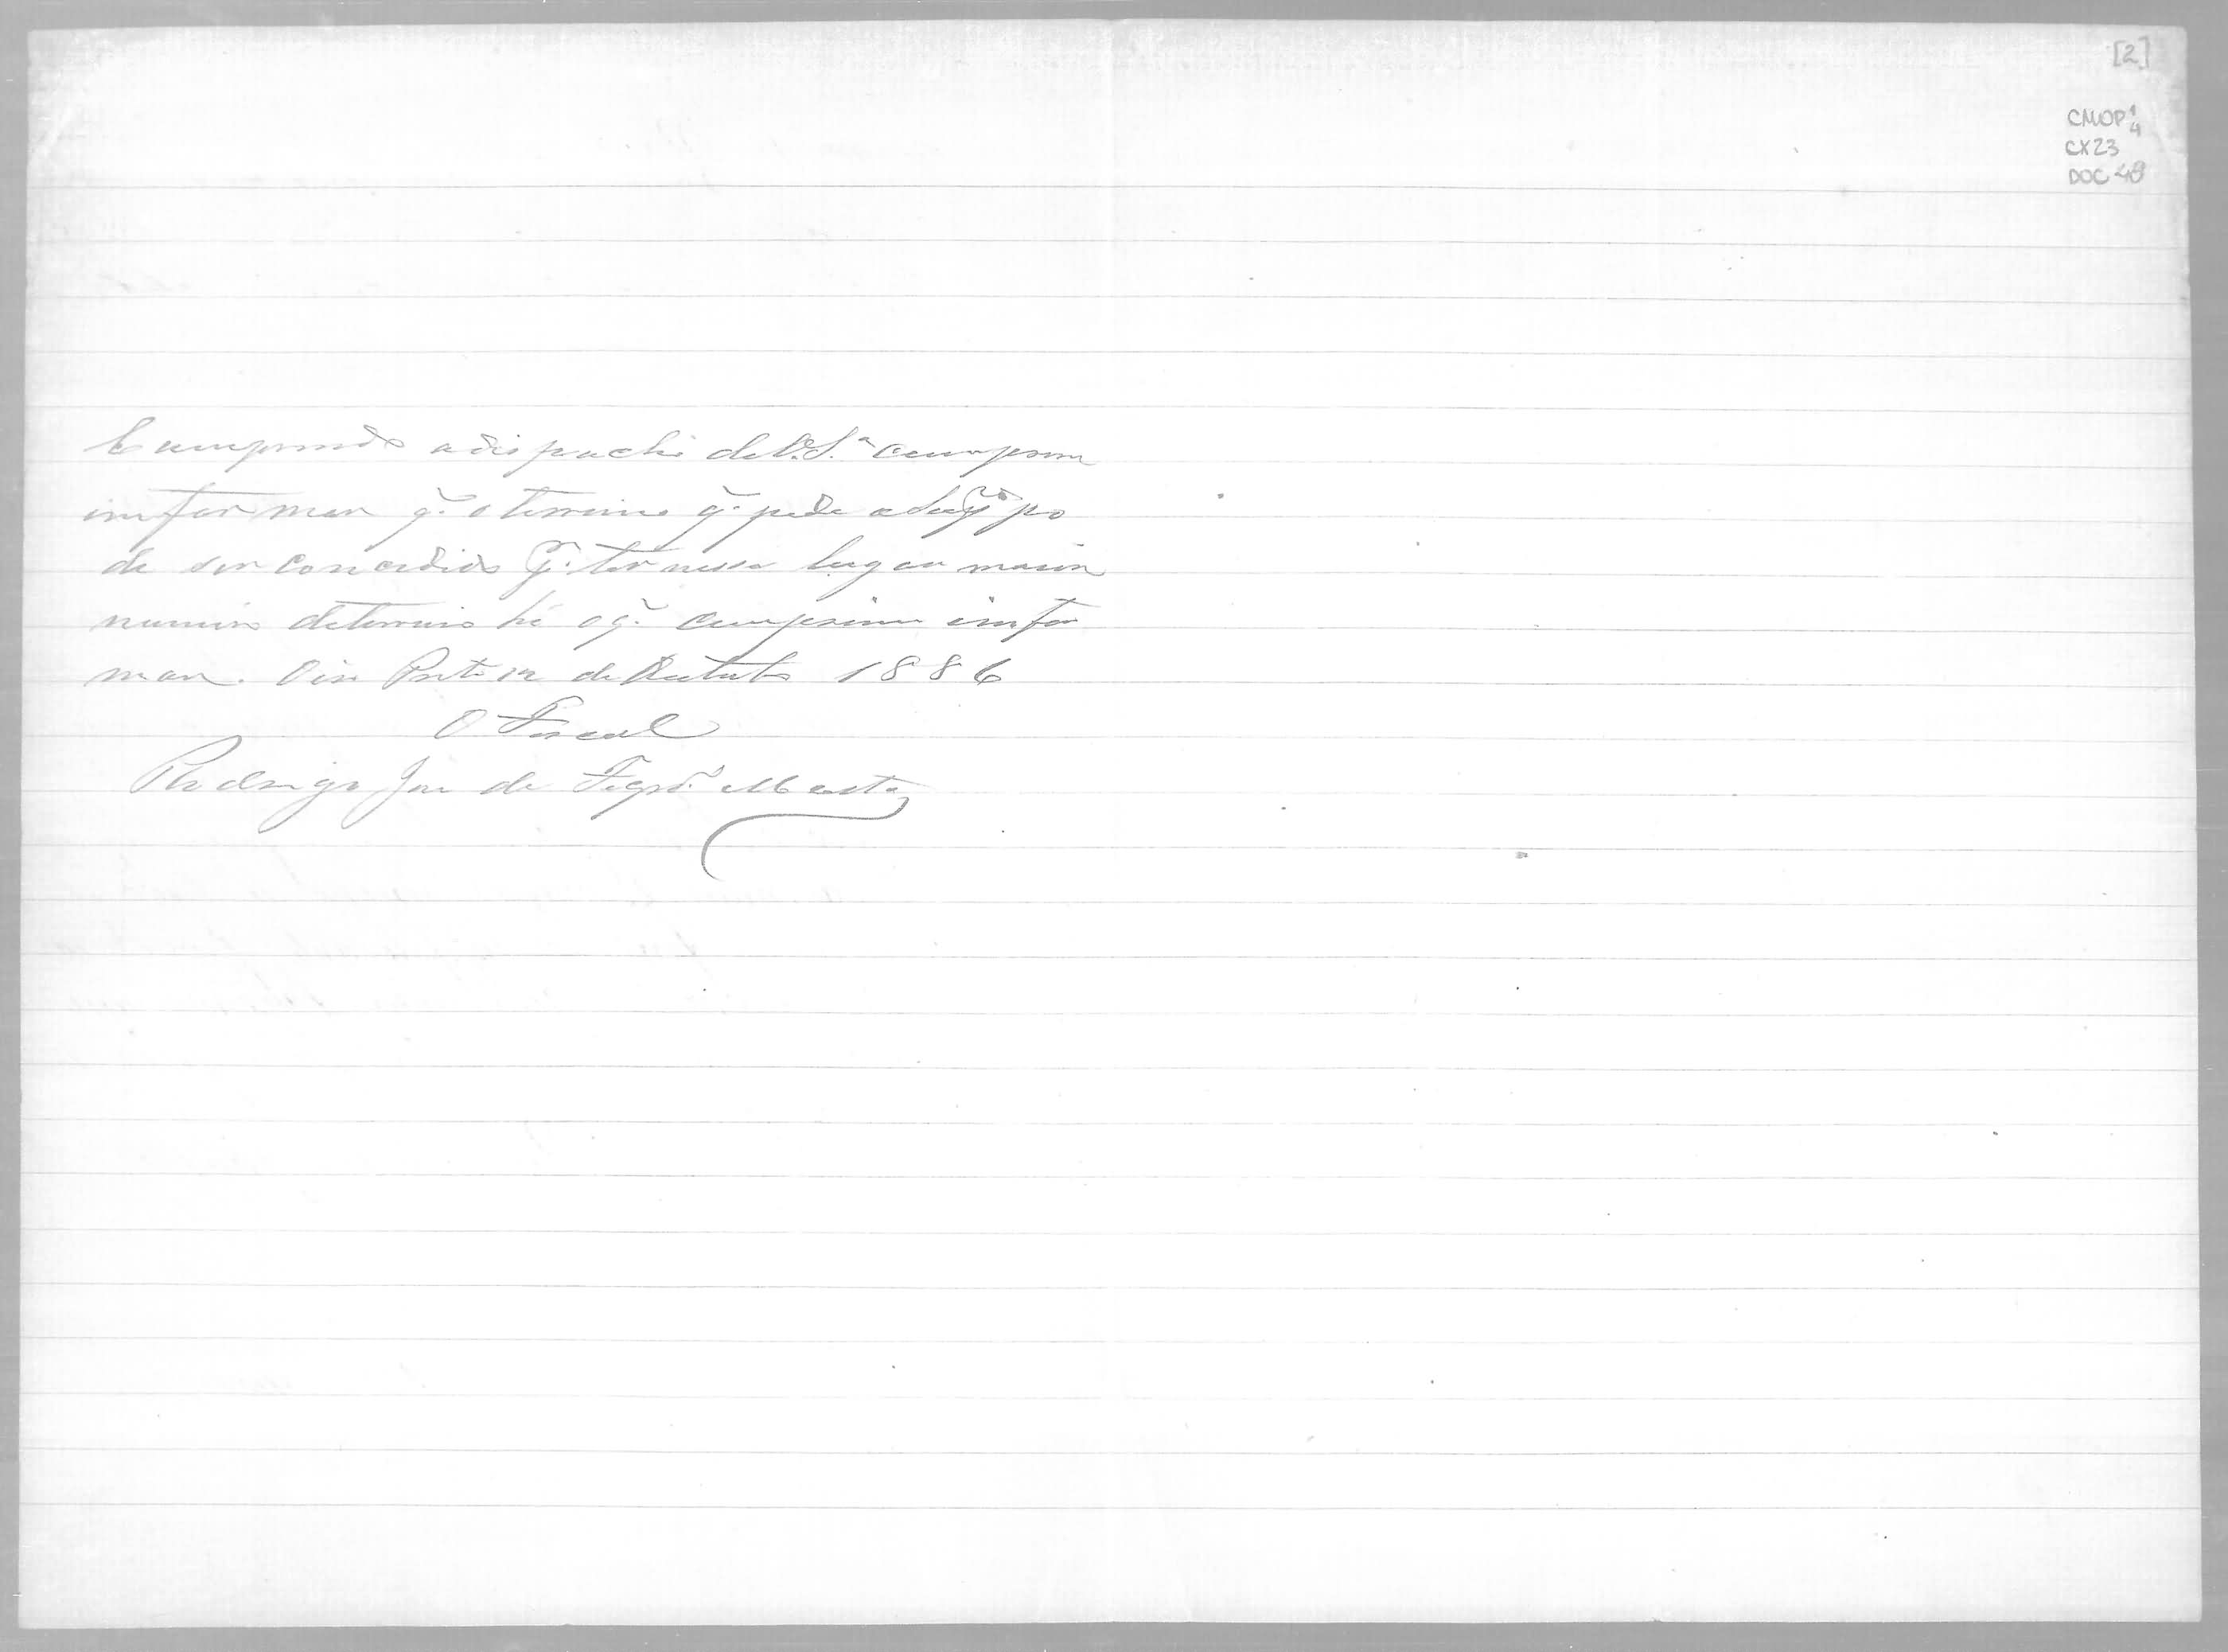 [2]
CMOP 1/4
CX23
DOC 48
Cumprindo adispacho de V.S.ª cumprem
imformar q.̃ o terrino q.̃ pede a Supp po
de ser concedido q.̃ ter nesse lugar maior
numiro deterrino hé oq.̃ cumprem imfor
mar. Oiro Preto 12 de Outubro 1886
O Fiscal
Rodrigo José de Figrd.º Moreira